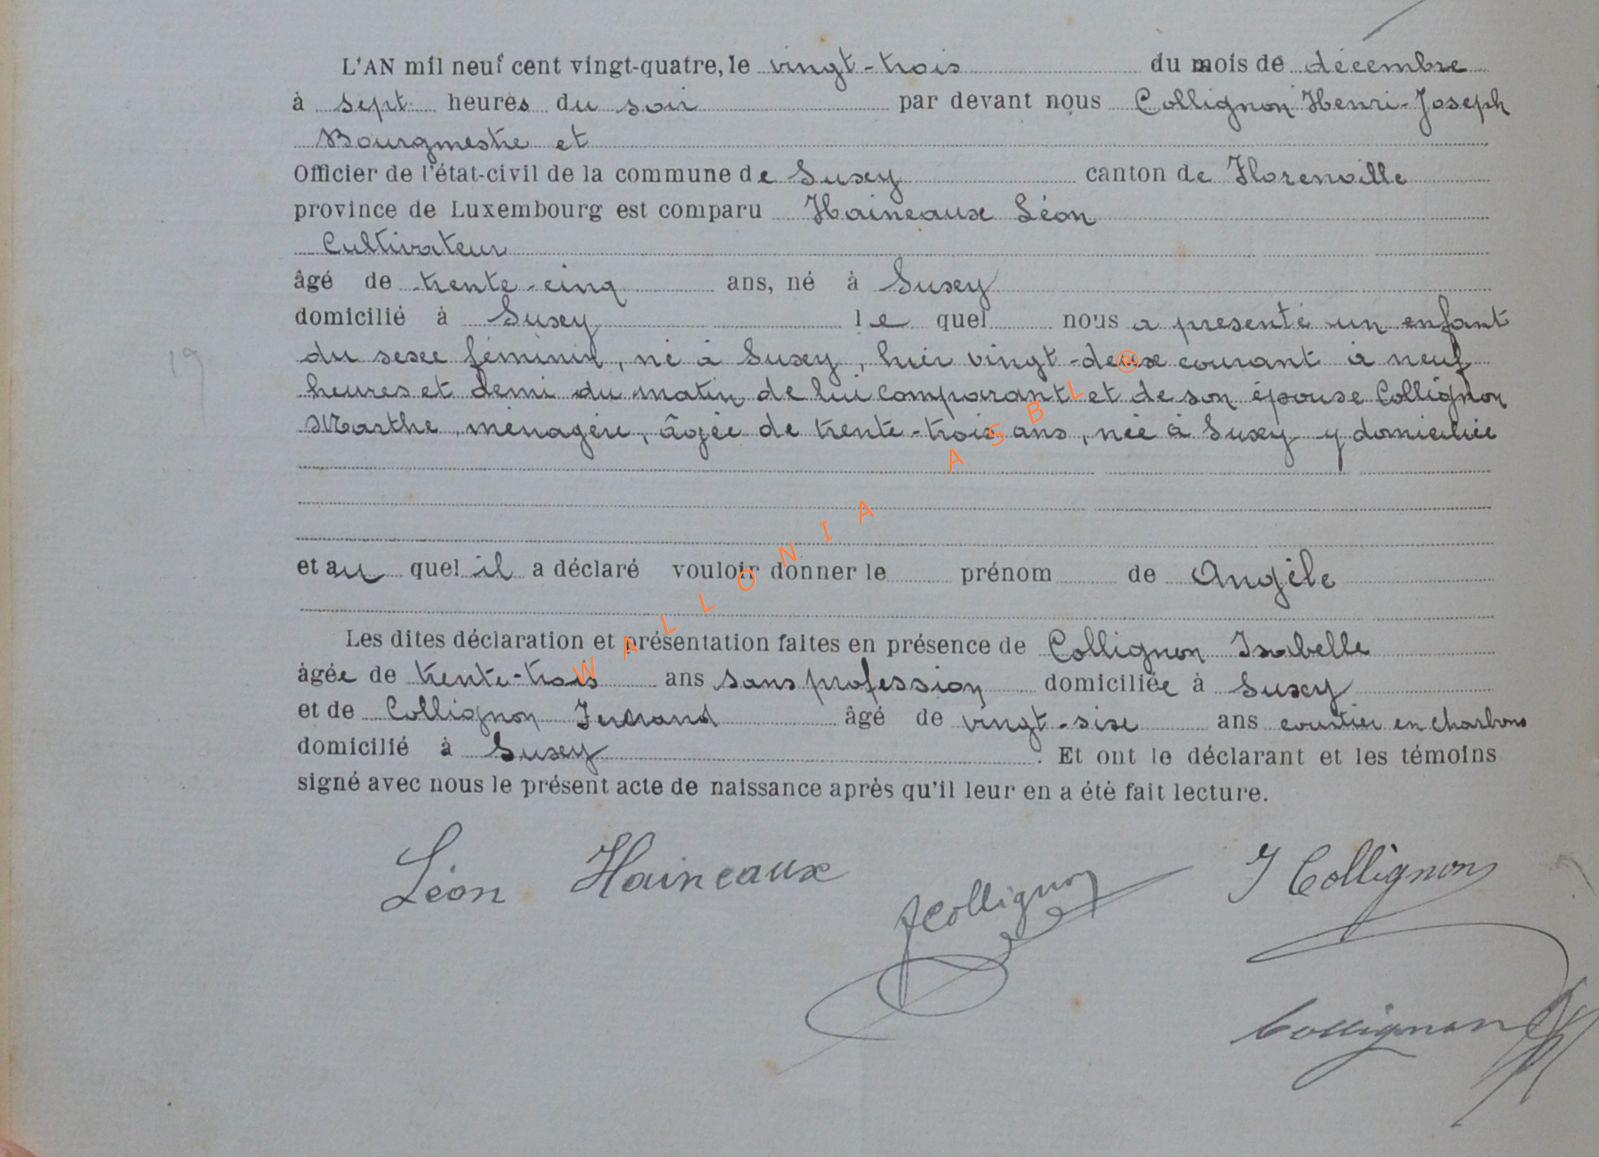 L'AN mil neuf cent vingt-quatre, le vingt-trois du mois de décembre
à sept heures du soir par devant nous Collignon Henri-Joseph
Bourgmestre et
Officier de l'état-civil de la commune de Suxey canton de Florenville
province de Luxembourg est comparu Haineaux Léon
Cultivateur
âgé de trente-cinq ans, né à Suxey
domicilié à Suxey le quel nous a présenté un enfant
du sexe féminin, né à Suxey, hier vingt-deux courant à neuf
heures et demi du matin de lui comparant et de son épouse Collignon
Marthe, ménagère, âgée de trente-trois ans, née à Suxey y domiciliée
et au quel il a déclaré vouloir donner le prénom de Angèle
Les dites déclaration et présentation faites en présence de Collignon Isabelle
âgée de trente-trois ans sans profession domiciliée à Suxey
et de Collignon Fernand âgé de vingt-six ans courtier en charbons
domicilié à Suxey. Et ont le déclarant et les témoins
signé avec nous le présent acte de naissance après qu'il leur en a été fait lecture.
Léon Haineaux
FCollignon
I Collignon
Collignon
WALLONIA ASBL ®
19